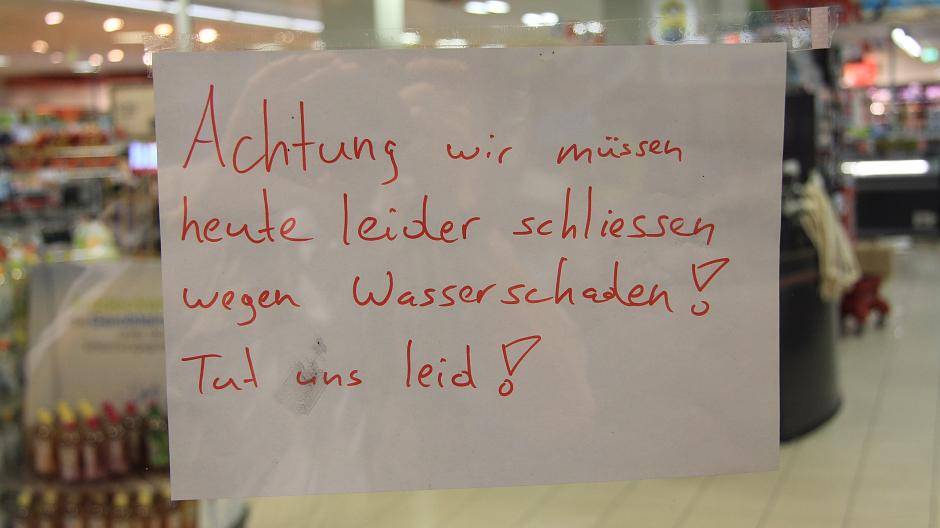 Achtung wir müssen
heute leider schliessen
wegen Wasserschaden!
Tut uns leid!